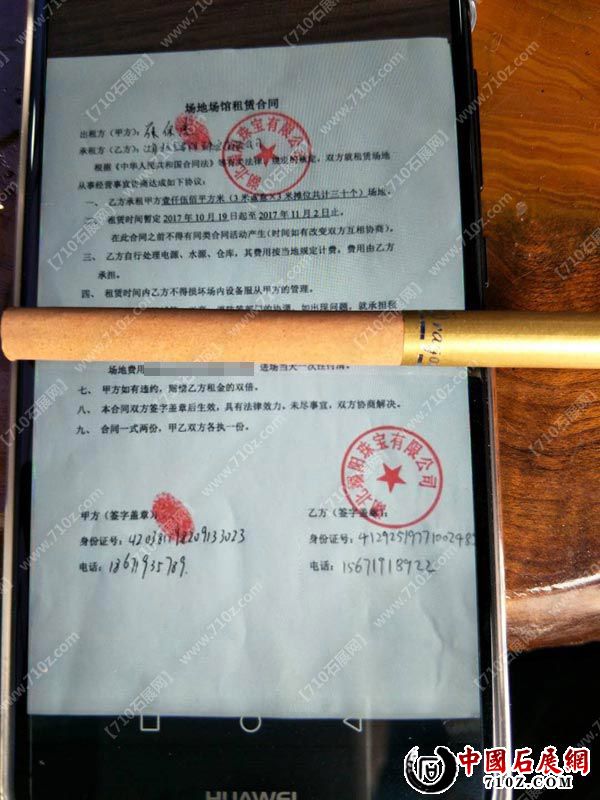 场地场馆租赁合同
出租方（甲方）：
承租方（乙方）：
根据《中华人民共和国合同法》等有关法律、规定的规定，双方就租赁场地
从事经营事宜协商达成如下协议：
一、 乙方承租甲方壹仟伍佰平方米（3米 ×3米摊位共计三十个）场地。
二、 租赁时间暂定2017年10月19日起至2017年11月2日止。
在此合同之前不得有同类合同活动产生（时间如有改变双方互相协商）。
三、 乙方自行处理电源、水源、仓库，其费用按当地规定计费，费用由乙方
承担。
四、 租赁时间内乙方不得损坏场内设备服从甲方的管理。
的协调，如出现问题，就承担租
场地费用 进场当天一次性付清。
七、 甲方如有违约，赔偿乙方租金的双倍。
八、 本合同双方签字盖章后生效，具有法律效力，未尽事宜，双方协商解决。
九、 合同一式两份，甲乙双方各执一份。
湖北巅阳珠宝有限公司
甲方（签字盖章）：
身份证号：
电话：
乙方（签字盖章）：
身份证号：
电话：15671918922
HUAWEI
【710石展网】
www.710z.com
中國石展網
710Z.COM